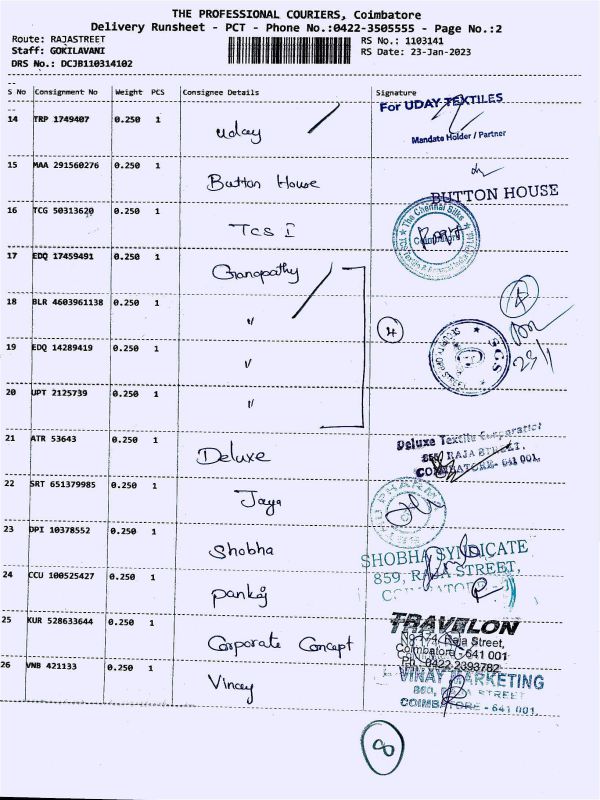 THE PROFESSIONAL COURIERS, Coimbatore
Delivery Runsheet - PCT - Phone No.:0422-3505555 - Page No.:2
Route: RAJASTREET
Staff: GOKILAVANI
DRS No.: DCJB110314102
RS No.: 1103141
RS Date: 23-Jan-2023
S No Consignment No Weight PCS Consignee Details Signature
14 TRP 1749407 0.250 1 Uday
For UDAY TEXTILES
Mandate Holder / Partner
15 MAA 291560276 0.250 1 Button House
BUTTON HOUSE
16 TCG 50313620 0.250 1 Tcs I
The Chennai Silks
Coimbatore
17 EDQ 17459491 0.250 1 Ganapathy
18 BLR 4603961138 0.250 1 "
4
19 EDQ 14289419 0.250 1 "
S G S
23/1
20 UPT 2125739 0.250 1 "
21 ATR 53643 0.250 1 Deluxe
Deluxe Textile Corporation
855 RAJA STREET,
COIMBATORE - 641 001.
22 SRT 651379985 0.250 1 Jaya
PHARMA
23 DPI 10378552 0.250 1 Shobha
SHOBHA SYNDICATE
859, RAJA STREET,
24 CCU 100525427 0.250 1 Pankaj
25 KUR 528633644 0.250 1 Corporate Concept
TRAVELON
No 174, Raja Street,
Coimbatore - 641 001
Ph : 0422 2393782
26 VNB 421133 0.250 1 Vinay
VINAY MARKETING
STREET
COIMBATORE - 641 001.
8